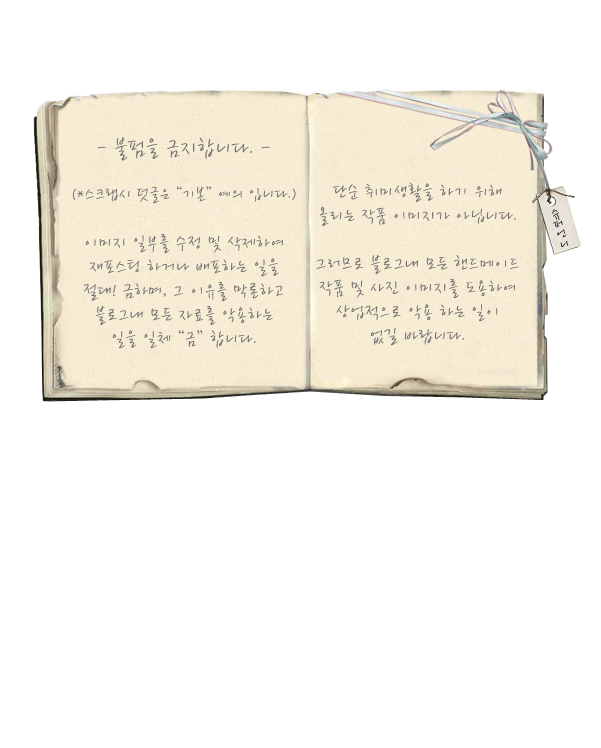 - 불펌을 금지합니다. -
(*스크랩시 덧글은 "기본" 예의 입니다.)
이미지 일부를 수정 및 삭제하여
재포스팅 하거나 배포하는 일을
절대! 금하며, 그 이유를 막론하고
블로그내 모든 자료를 악용하는
일을 일체 "금" 합니다.
단순 취미생활을 하기 위해
올리는 작품 이미지가 아닙니다.
그러므로 블로그내 모든 핸드메이드
작품 및 사진 이미지를 도용하여
상업적으로 악용 하는 일이
없길 바랍니다.
슈퍼언니